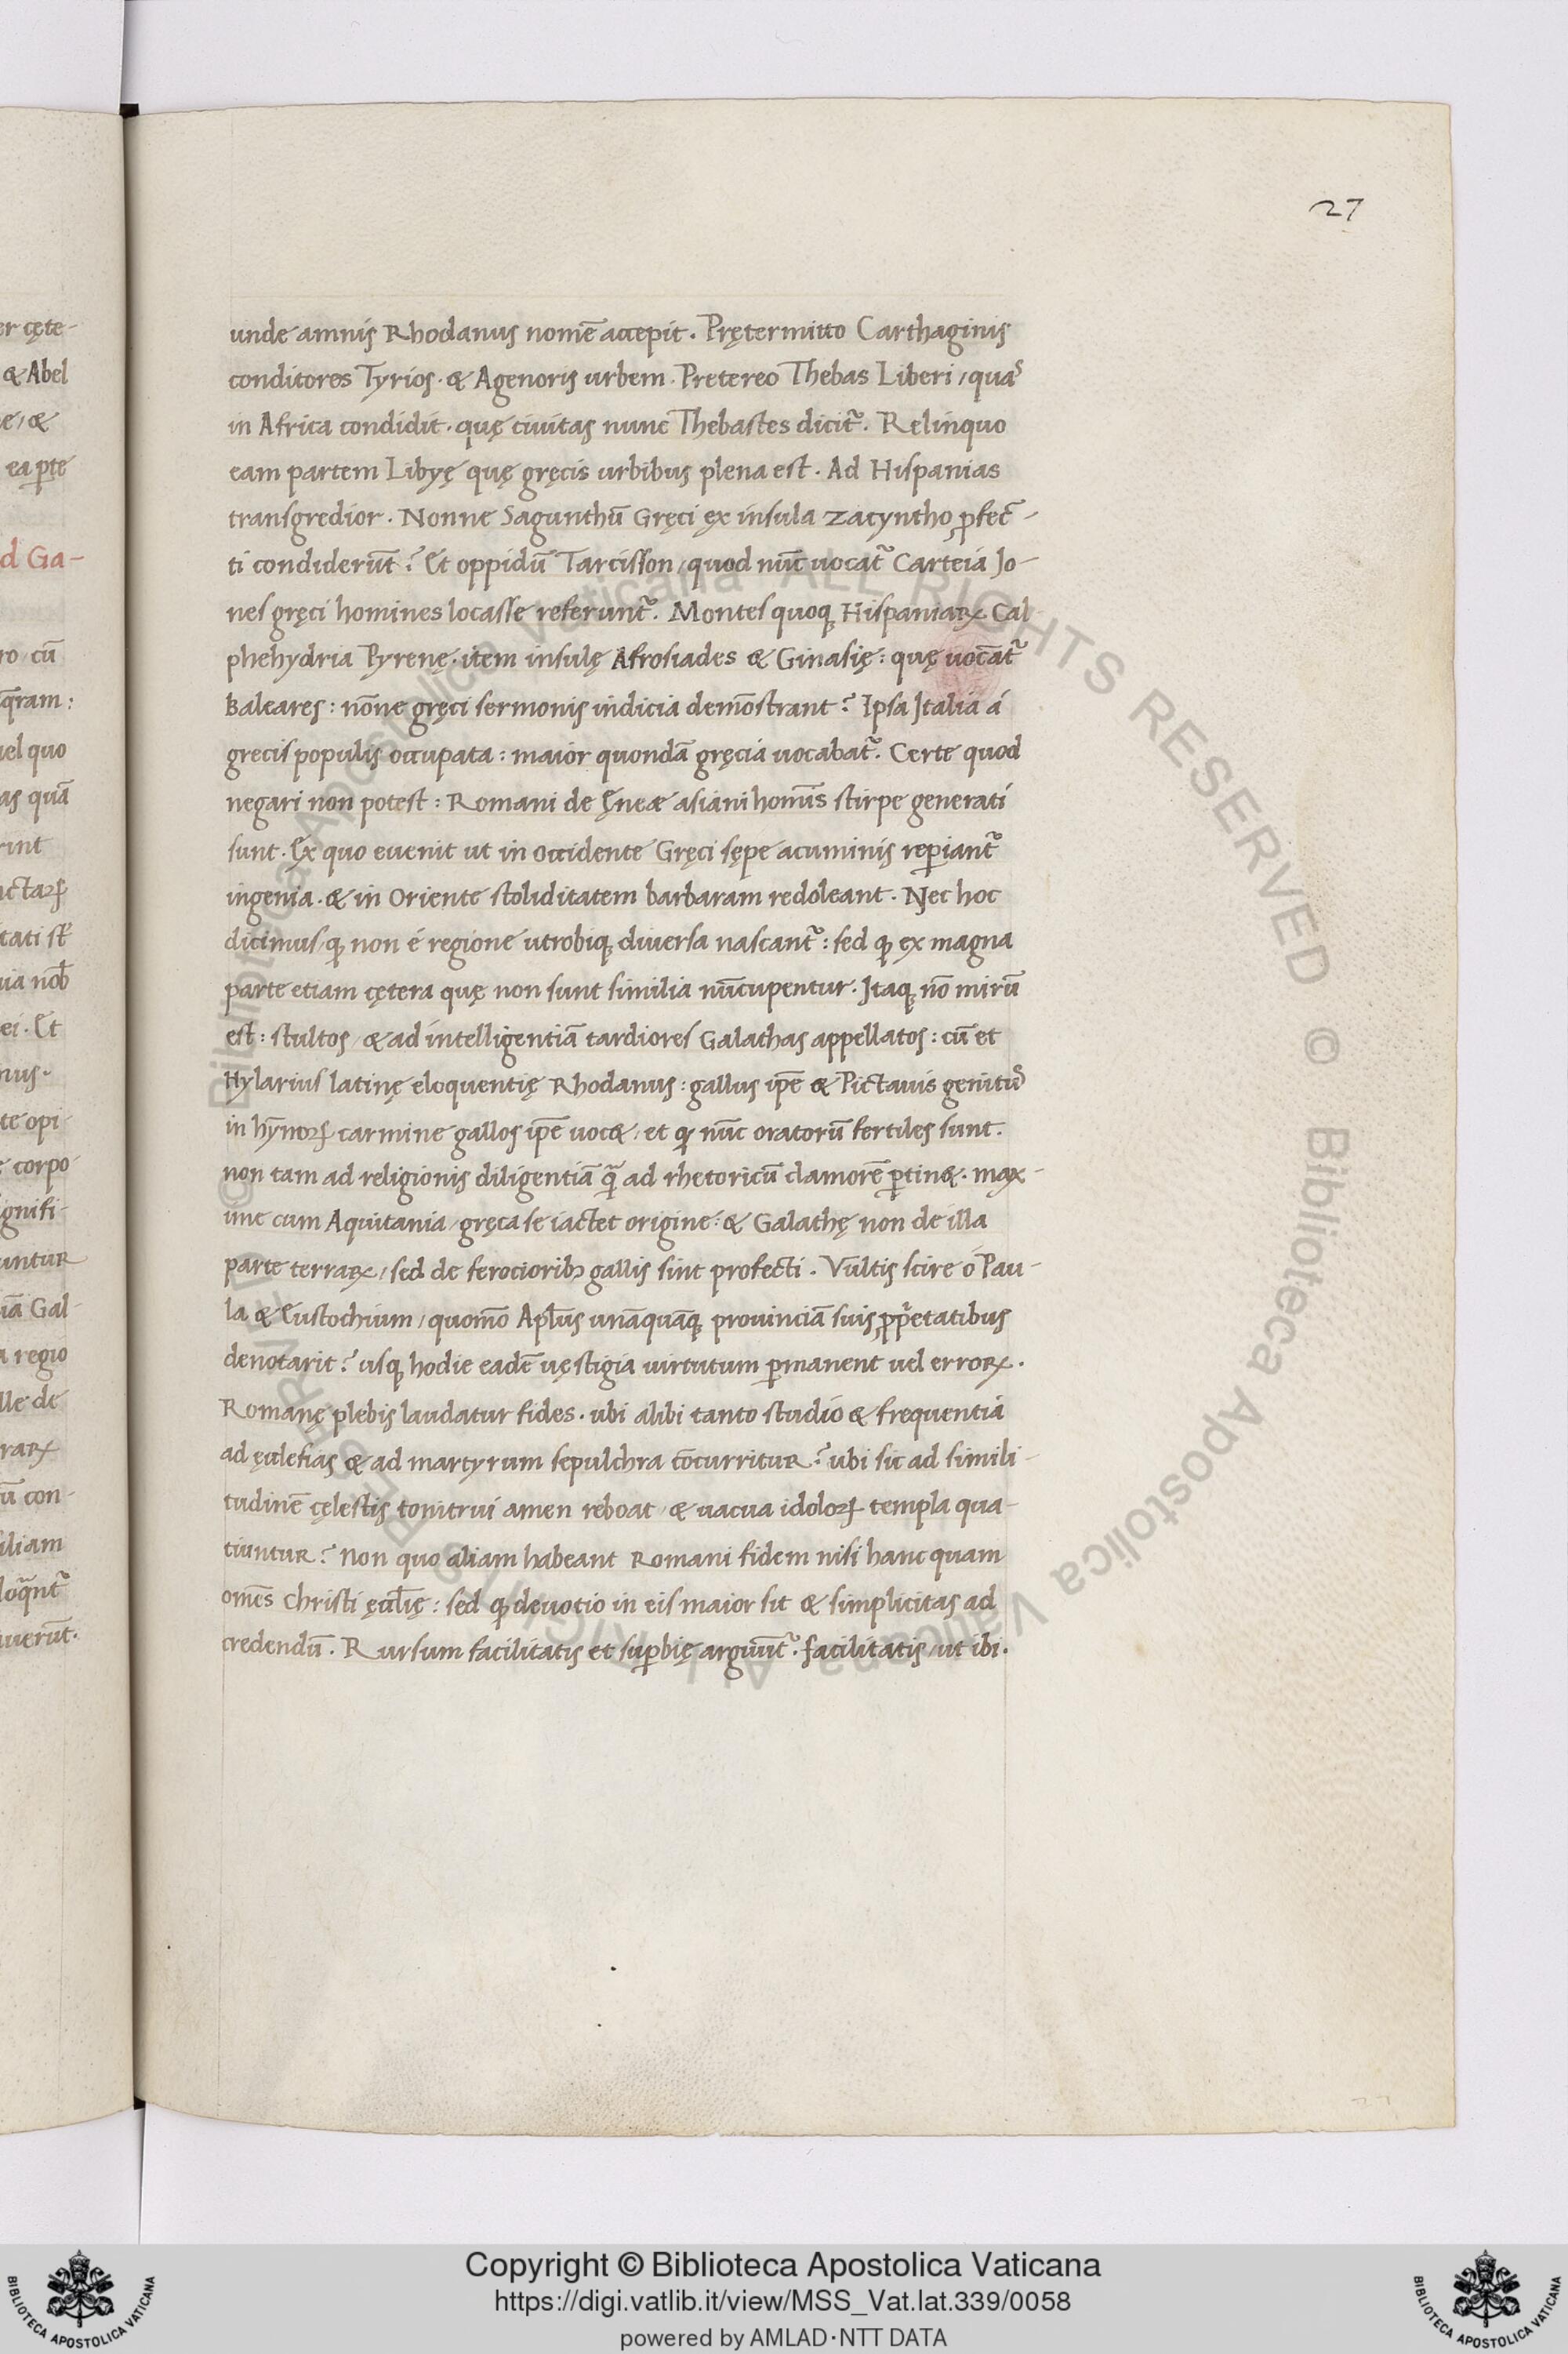 27
er cęte-
& Abel
e/ &
ea p̱te
d Ga-
ro cū
q̄ram:
uel quo
as quā
rint
ctaꝝ
tati sť
ua nob̄
ei. Et
nus.
te opi-
corpo
gnifi-
untur
iā Gal-
a regio
lle de
raꝝ
ū con-
iliam
loq̄nt᷑
uerūt.
unde amnis Rhodanus nomē accepit. Prętermitto Carthaginis
conditores Tyrios. & Agenoris urbem. Pretereo Thebas Liberi, quas
in Africa condidit. quę ciuitas nunc Thebastes dicit᷑. Relinquo
eam partem Libyę quę gręcis urbibus plena est. Ad Hispanias
transgredior. Nonne Sagunthū Gręci ex insula Zacyntho ꝓfect-
ti condiderūt? Et oppidū Tarcisson, quod nūc uocat᷑ Carteia Jo-
nes gręci homines locasse referunt᷑. Montes quoq; Hispaniaꝝ Cal
phehydria Pyrenę. item insulę Afrosiades & Ginasię: quę uocāt᷑
Baleares: nōne gręci sermonis indicia demōstrant? Ipsa Italia á
grecis populis occupata: maior quondā gręcia uocabat᷑. Certe quod
negari non potest: Romani de Ęneæ asiani homīs stirpe generati
sunt. Ex quo euenit ut in occidente Gręci sępe acuminis reꝑiant᷑
ingenia. & in Oriente stoliditatem barbaram redoleant. Nec hoc
dicimus, ꝙ non é regione utrobiq; diuersa nascant᷑: sed ꝙ ex magna
parte etiam cętera quę non sunt similia nūcupentur. Itaq; nō mirū
est: stultos, & ad intelligentiā tardiores Galathas appellatos: cū et
Hylarius latinę eloquentię Rhodanus: gallus ip̄e & Pictauis genitus
in hȳnoꝝ carmine gallos ip̄e uocᷓ& / et ꝙ nūc oratorū fertiles sunt.
non tam ad religionis diligentiā q̄ ad rhetoricū clamorē ꝑtin&. max-
ime cum Aquitania, gręca se iactet origine: & Galathę non de illa
parte terraꝝ, sed de ferocioribꝫ gallis sint profecti. Vultis scire ó Pau-
la & Eustochium, quomō Apľus unāquāq; prouinciā suis ꝓp̄etatibus
denotarit? usq; hodie eadē uęstigia uirtutum ꝑmanent uel erroꝝ.
Romanę plebis laudatur fides. ubi alibi tanto studio & frequentia
ad ęcclesias & ad martyrum sepulchra cōcurritur? ubi sic ad simili-
tudinē cęlestis tonitrui amen reboat, & uacua idoloꝝ templa qua-
tiuntur? Non quo aliam habeant Romani fidem nisi hanc quam
om̄s Christi ęccľię: sed ꝙ deuotio in eis maior sit & simplicitas ad
credendū. Rursum facilitatis et suꝑbię arguūt᷑. facilitatis, ut ibi.
© Biblioteca Apostolica Vaticana ALL RIGHTS RESERVED © Biblioteca Apostolica Vaticana ALL RIGHTS RESERVED
BIBLIOTECA APOSTOLICA VATICANA
Copyright © Biblioteca Apostolica Vaticana
https://digi.vatlib.it/view/MSS_Vat.lat.339/0058
powered by AMLAD·NTT DATA
BIBLIOTECA APOSTOLICA VATICANA